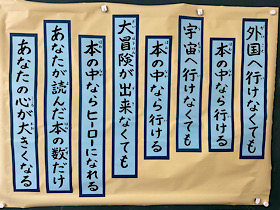 外国へ行けなくても
本の中なら行ける
宇宙へ行けなくても
本の中なら行ける
大冒険が出来なくても
本の中ならヒーローになれる
あなたが読んだ本の数だけ
あなたの心が大きくなる